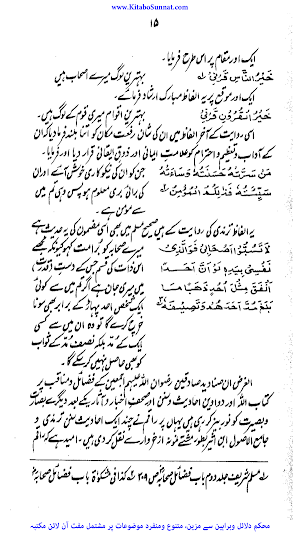 www.KitaboSunnat.com
۱۵
ایک اور مقام پر اس طرح فرمایا۔
خَيْرُ النَّاسِ قَرْنِيْ لہ بہترین لوگ میرے اصحاب ہیں
ایک اور موقع پر یہ الفاظ مبارک ارشاد فرمائے۔
خَيْرُ الْقُرُوْنِ قَرْنِيْ بہترین اقوام میری قوم کے لوگ ہیں۔
اسی روایت کے آخر الفاظ میں ان کی شان رفعت مکان کو اتنا بلند فرمایا کہ ان
کے آداب و تعظیم و احترام کو علامت ایمانی اور ذوق ایقانی قرار دیا اور فرمایا۔
مَنْ سَرَّتْهُ حَسَنَتُهُ وَسَاءَتْهُ جن کو ان کی نیکو کاری خوش آئے اور ان
سَيِّئَتُهُ فَذٰلِكَ الْمُؤْمِنُ کی برائی بری معلوم ہو پس وہی تم میں
سے مؤمن ہے۔
یہ الفاظ ترمذی کی روایت کے ہیں صحیح مسلم میں بھی اسی مضمون کی یہ حدیث ہے
لَا تَسُبُّوْا اَصْحَابِيْ فَوَالَّذِيْ میرے صحابہ کو برا مت کہو کیونکہ مجھے
نَفْسِيْ بِيَدِهٖ لَوْ اَنَّ اَحَدًا اس ذات کی قسم جس کے دست (قدرت)
اَنْفَقَ مِثْلَ اُحُدٍ ذَهَبًا مَا میں میری جان ہے اگر تم میں سے کوئی
بَلَغَ مُدَّ اَحَدِهِمْ وَلَا نَصِيْفَهٗ ایک شخص احد پہاڑ کے برابر بھی سونا
خرچ کرے گا تو وہ ان میں سے کسی
ایک کے مد بلکہ نصف مد کے ثواب
کو بھی حاصل نہیں کر سکے گا
الغرض ان صنادید صادقین رضوان اللہ علیہم اجمعین کے فضائل و مناقب پر
کتاب اللہ اور دواوین احادیث وسنن اور صحف اخبار و آثار یکے بعد دیگرے بصارت
و بصیرت کو نور ریز کر رہی ہیں یہاں پر راقم نے چند ایک احادیث سنن ترمذی و
جامع الاصول ابن اثیر بطور مشتے نمونہ از خروارے نقل کر دی ہیں۔ امید ہے کہ راقم
مسلم شریف جلد دوم باب فضائل صحابہ ص ۳۰۹ کذا فی مشکوٰۃ باب فضائل صحابہ
محکم دلائل وبراہین سے مزین، متنوع ومنفرد موضوعات پر مشتمل مفت آن لائن مکتبہ